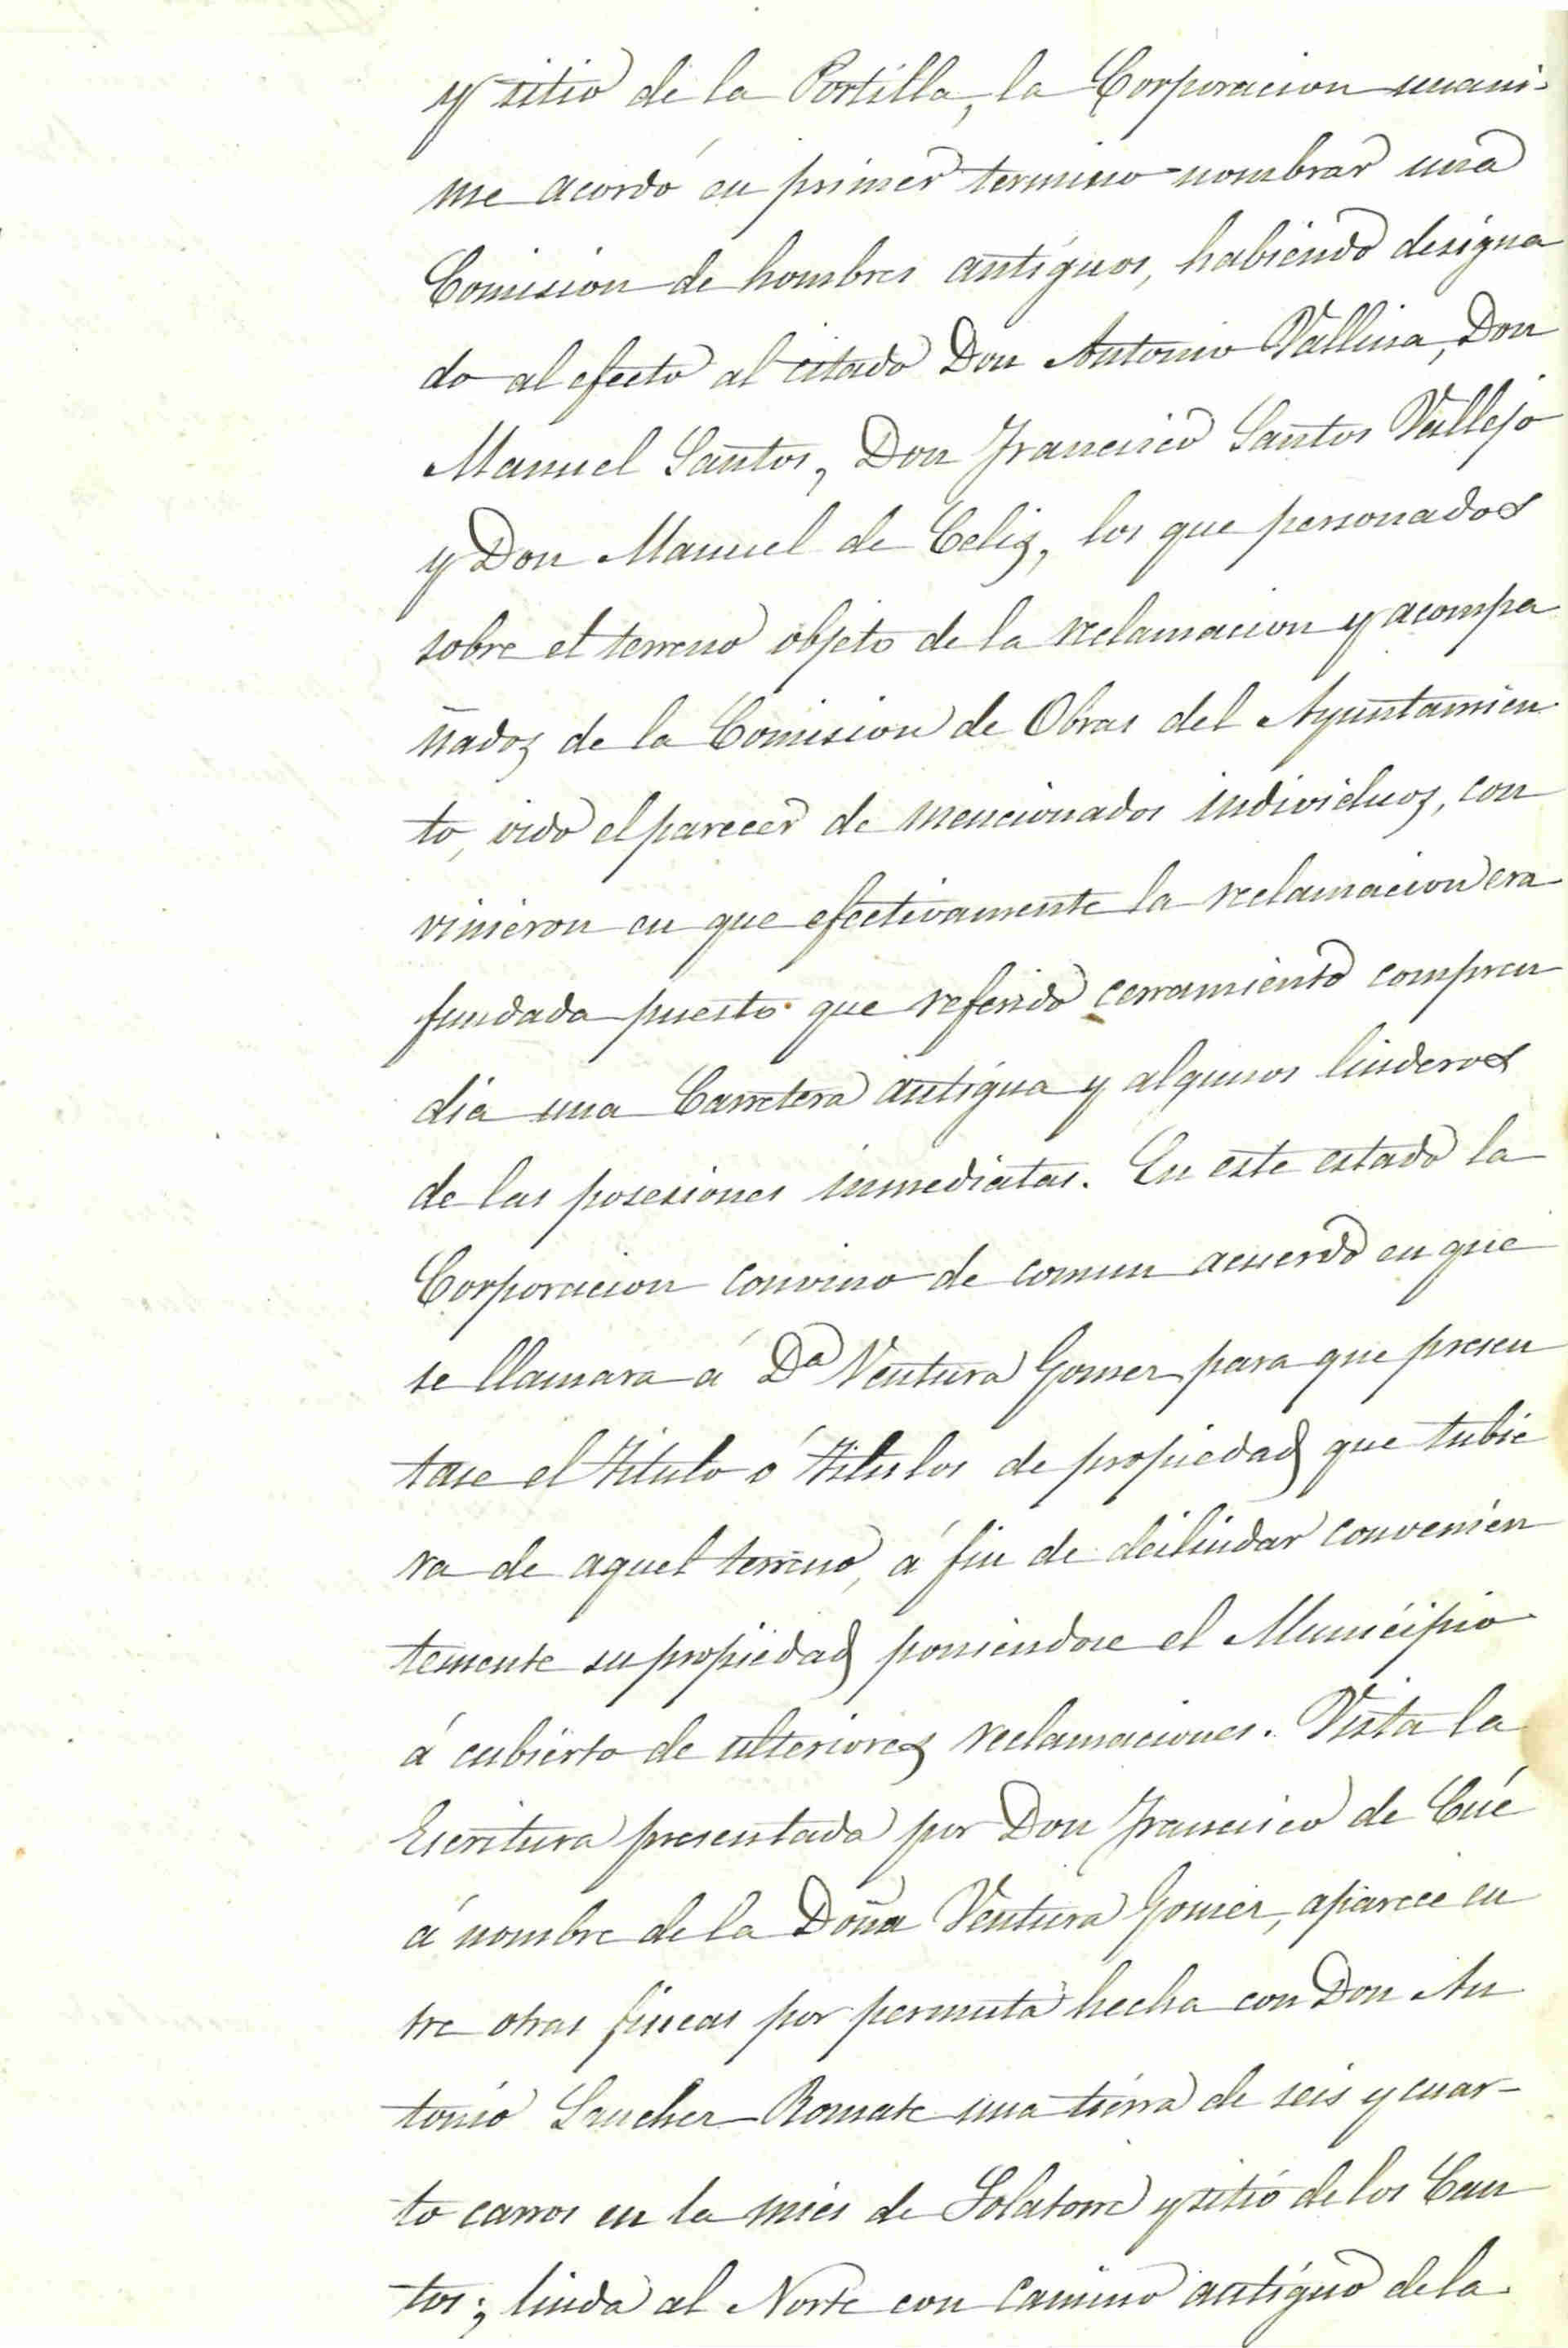 y sitio de la Portilla, la Corporacion unani-
me acordó en primer termino nombrar una
Comision de hombres antiguos, habiendo designa
do al efecto al citado Don Antonio Vallina, Don
Manuel Santos, Don Francisco Santos Vallejo
y Don Manuel de Celiz, los que personados
sobre el terreno objeto de la reclamacion y acompa
ñados de la Comision de Obras del Ayuntamien
to, oido el parecer de mencionados individuos, con
vinieron en que efectivamente la reclamacion era
fundada puesto que referido cerramiento compren
dia una Carretera antigua y algunos linderos
de las posesiones inmediatas. En este estado la
Corporacion convino de comun acuerdo en que
se llamara á Dª Ventura Gomez para que presen
tase el titulo ó titulos de propiedad que tubie
ra de aquel terreno, á fin de deslindar convenien
temente su propiedad poniendose el Municipio
á cubierto de ulteriores reclamaciones. Vista la
Escritura presentada por Don Francisco de Cué
á nombre de la Doña Ventura Gomez, aparece en
tre otras fincas por permuta hecha con Don An
tonio Sanchez Romate una tierra de seis y cuar-
to carros en la mies de Solatorre y sitio de los Can
tos; linda al Norte con Camino antiguo de la